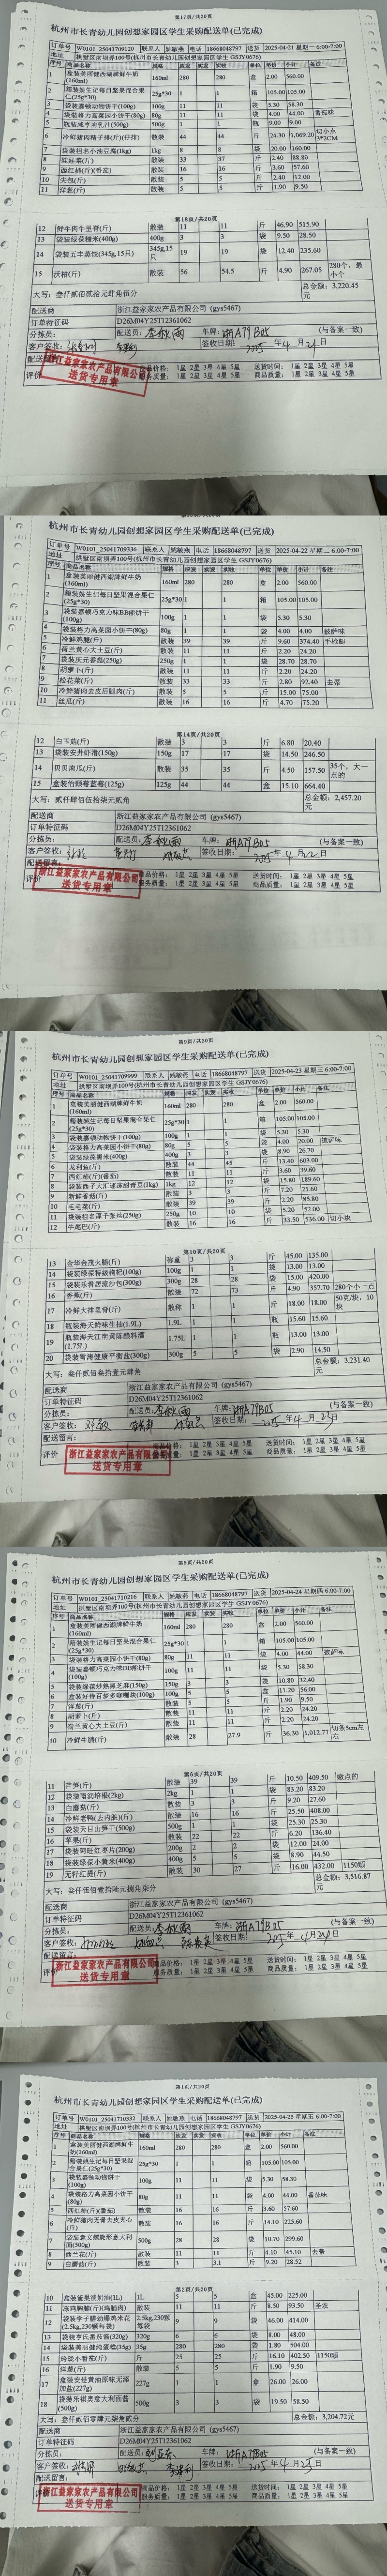 第17页/共20页
杭州市长青幼儿园创想家园区学生采购配送单(已完成)
订单号 W0101_25041709120 联系人 姚敏燕 电话 18668048797 送货 2025-04-21 星期一 6:00-7:00
地址 拱墅区南坝弄100号(杭州市长青幼儿园创想家园区学生 GSJY0676)
序号 商品名称 规格 应发 实发 实收 单位 单价 小计 备注
1 盒装美丽健西湖牌鲜牛奶(160ml) 160ml 280 280 盒 2.00 560.00
2 箱装姚生记每日坚果混合果仁(25g*30) 25g*30 1 1 箱 105.00 105.00
3 袋装嘉顿动物饼干(100g) 100g 11 11 袋 5.30 58.30
4 袋装格力高菜园小饼干(80g) 80g 11 11 袋 4.00 44.00 番茄味
5 瓶装咸亨南乳汁(500g) 500g 1 1 瓶 9.00 9.00
6 冷鲜猪肉精子排(斤)(仔排) 散装 44 44 斤 24.30 1,069.20 切小点3*2CM
7 袋装祖名小油豆腐(1kg) 1kg 8 8 袋 20.00 160.00
8 娃娃菜(斤) 散装 33 37 斤 2.40 88.80
9 西红柿(斤)(番茄) 散装 16 16 斤 3.60 57.60
10 尖包(斤) 散装 5 5 斤 2.40 12.00
11 洋葱(斤) 散装 5 5 斤 1.90 9.50
第18页/共20页
12 鲜牛肉牛里脊(斤) 散装 11 11 斤 46.90 515.90
13 袋装绿葆糯米(400g) 400g 3 3 袋 9.50 28.50
14 袋装五丰蒸饺(345g,15只) 345g,15只 19 19 袋 12.40 235.60
15 沃柑(斤) 散装 56 54.5 斤 4.90 267.05 280个，最小个
大写：叁仟贰佰贰拾元肆角伍分 总金额：3,220.45元
配送商 浙江益家家农产品有限公司 (gys5467)
订单特征码 D26M04Y25T12361062
分拣员： 配送员： 车牌：浙A79B05 (与备案一致)
客户签收： 签收日期： 2025 年 4 月 21 日
配送留言：
评价 商品价格： 1星 2星 3星 4星 5星 送货时间： 1星 2星 3星 4星 5星
服务质量： 1星 2星 3星 4星 5星 商品质量： 1星 2星 3星 4星 5星
浙江益家家农产品有限公司
送货专用章
杭州市长青幼儿园创想家园区学生采购配送单(已完成)
订单号 W0101_25041709336 联系人 姚敏燕 电话 18668048797 送货 2025-04-22 星期二 6:00-7:00
地址 拱墅区南坝弄100号(杭州市长青幼儿园创想家园区学生 GSJY0676)
序号 商品名称 规格 应发 实发 实收 单位 单价 小计 备注
1 盒装美丽健西湖牌鲜牛奶(160ml) 160ml 280 280 盒 2.00 560.00
2 箱装姚生记每日坚果混合果仁(25g*30) 25g*30 1 1 箱 105.00 105.00
3 袋装嘉顿巧克力味BB熊饼干(100g) 100g 1 1 袋 5.30 5.30
4 袋装格力高菜园小饼干(80g) 80g 1 1 袋 4.00 4.00 披萨味
5 冷鲜鸡腿(斤) 散装 39 39 斤 9.60 374.40 手枪腿
6 荷兰黄心大土豆(斤) 散装 11 11 斤 2.20 24.20
7 袋装庆元香菇(250g) 250g 1 1 袋 28.70 28.70
8 胡萝卜(斤) 散装 11 11 斤 2.20 24.20
9 松花菜(斤) 散装 33 33 斤 2.80 92.40 去蒂
10 冷鲜猪肉去皮后腿肉(斤) 散装 5 5 斤 15.00 75.00
11 丝瓜(斤) 散装 16 16 斤 4.70 75.20
第14页/共20页
12 白玉菇(斤) 散装 3 3 斤 6.80 20.40
13 袋装安井虾滑(150g) 150g 17 17 袋 14.50 246.50
14 贝贝南瓜(斤) 散装 35 35 斤 4.50 157.50 35个，大一点的
15 盒装怡颗莓蓝莓(125g) 125g 44 44 盒 15.10 664.40
大写：贰仟肆佰伍拾柒元贰角 总金额：2,457.20元
配送商 浙江益家家农产品有限公司 (gys5467)
订单特征码 D26M04Y25T12361062
分拣员： 配送员： 车牌：浙A79B05 (与备案一致)
客户签收： 签收日期： 2025 年 4 月 22 日
配送留言：
评价 商品价格： 1星 2星 3星 4星 5星 送货时间： 1星 2星 3星 4星 5星
服务质量： 1星 2星 3星 4星 5星 商品质量： 1星 2星 3星 4星 5星
浙江益家家农产品有限公司
送货专用章
第9页/共20页
杭州市长青幼儿园创想家园区学生采购配送单(已完成)
订单号 W0101_25041709999 联系人 姚敏燕 电话 18668048797 送货 2025-04-23 星期三 6:00-7:00
地址 拱墅区南坝弄100号(杭州市长青幼儿园创想家园区学生 GSJY0676)
序号 商品名称 规格 应发 实发 实收 单位 单价 小计 备注
1 盒装美丽健西湖牌鲜牛奶(160ml) 160ml 280 280 盒 2.00 560.00
2 箱装姚生记每日坚果混合果仁(25g*30) 25g*30 1 1 箱 105.00 105.00
3 袋装嘉顿动物饼干(100g) 100g 1 1 袋 5.30 5.30
4 袋装格力高菜园小饼干(80g) 80g 5 5 袋 4.00 20.00 披萨味
5 袋装绿葆薏米(400g) 400g 3 3 袋 8.90 26.70
6 龙利鱼(斤) 散装 44 45 斤 13.40 603.00
7 西红柿(斤)(番茄) 散装 11 11 斤 3.60 39.60
8 袋装西子大汇速冻甜青豆(1kg) 1kg 12 12 袋 15.80 189.60
9 新鲜香菇(斤) 散装 3 3 斤 7.20 21.60
10 毛毛菜(斤) 散装 39 39 斤 2.20 85.80
11 袋装祖名薄千张丝(250g) 250g 10 10 袋 5.20 52.00
12 牛尾巴(斤) 散装 16 16 斤 33.50 536.00 切小块
第10页/共20页
13 金华金茂火腿(斤) 称重 3 3 斤 45.00 135.00
14 袋装绿葆特级枸杞(100g) 100g 1 1 袋 13.00 13.00
15 袋装乐肴居流沙包(300g) 300g 28 28 袋 15.00 420.00
16 香蕉(斤) 散装 72 73 斤 4.90 357.70 280个小一点
17 冷鲜大排里脊(斤) 散称 1 1 斤 18.00 18.00 50克/块，10块
18 瓶装海天鲜味生抽(1.9L) 1.9L 1 1 瓶 15.60 15.60
19 瓶装海天江南黄陈酿料酒(1.75L) 1.75L 1 1 瓶 13.00 13.00
20 袋装雪涛健康平衡盐(300g) 300g 5 5 袋 2.90 14.50
大写：叁仟贰佰叁拾壹元肆角 总金额：3,231.40元
配送商 浙江益家家农产品有限公司 (gys5467)
订单特征码 D26M04Y25T12361062
分拣员： 配送员： 车牌：浙A79B05 (与备案一致)
客户签收： 签收日期： 2025 年 4 月 23 日
配送留言：
评价 商品价格： 1星 2星 3星 4星 5星 送货时间： 1星 2星 3星 4星 5星
服务质量： 1星 2星 3星 4星 5星 商品质量： 1星 2星 3星 4星 5星
浙江益家家农产品有限公司
送货专用章
第5页/共20页
杭州市长青幼儿园创想家园区学生采购配送单(已完成)
订单号 W0101_25041710216 联系人 姚敏燕 电话 18668048797 送货 2025-04-24 星期四 6:00-7:00
地址 拱墅区南坝弄100号(杭州市长青幼儿园创想家园区学生 GSJY0676)
序号 商品名称 规格 应发 实发 实收 单位 单价 小计 备注
1 盒装美丽健西湖牌鲜牛奶(160ml) 160ml 280 280 盒 2.00 560.00
2 箱装姚生记每日坚果混合果仁(25g*30) 25g*30 1 1 箱 105.00 105.00
3 袋装格力高菜园小饼干(80g) 80g 11 11 袋 4.00 44.00 披萨味
4 袋装嘉顿巧克力味BB熊饼干(100g) 100g 11 11 袋 5.30 58.30
5 袋装绿葆炒熟黑芝麻(150g) 150g 3 3 袋 10.80 32.40
6 盒装好侍百梦多咖喱块(100g) 100g 5 5 盒 11.20 56.00
7 洋葱(斤) 散装 5 5 斤 1.90 9.50
8 胡萝卜(斤) 散装 11 11 斤 2.20 24.20
9 荷兰黄心大土豆(斤) 散装 11 11 斤 2.20 24.20
10 冷鲜牛腩(斤) 散装 28 27.9 斤 36.30 1,012.77 切条5cm左右
第6页/共20页
11 芦笋(斤) 散装 39 39 斤 10.50 409.50 嫩点的
12 袋装雨润培根(2kg) 2kg 1 1 袋 83.20 83.20
13 白蘑菇(斤) 散装 3 3 斤 9.20 27.60
14 冷鲜老鸭(去内脏)(斤) 散装 16 16 斤 25.50 408.00
15 袋装天目山笋干(500g) 500g 1 1 袋 25.30 25.30
16 苹果(斤) 散装 22 22 斤 6.20 136.40
17 袋装阿旺红枣片(200g) 200g 2 2 袋 12.00 24.00
18 袋装绿葆小黄米(400g) 400g 5 5 袋 8.90 44.50
19 无籽红提(斤) 散装 30 27 斤 16.00 432.00 1150颗
大写：叁仟伍佰壹拾陆元捌角柒分 总金额：3,516.87元
配送商 浙江益家家农产品有限公司 (gys5467)
订单特征码 D26M04Y25T12361062
分拣员： 配送员： 车牌：浙A79B05 (与备案一致)
客户签收： 签收日期： 2025 年 4 月 24 日
配送留言：
评价 商品价格： 1星 2星 3星 4星 5星 送货时间： 1星 2星 3星 4星 5星
服务质量： 1星 2星 3星 4星 5星 商品质量： 1星 2星 3星 4星 5星
浙江益家家农产品有限公司
送货专用章
第1页/共20页
杭州市长青幼儿园创想家园区学生采购配送单(已完成)
订单号 W0101_25041710332 联系人 姚敏燕 电话 18668048797 送货 2025-04-25 星期五 6:00-7:00
地址 拱墅区南坝弄100号(杭州市长青幼儿园创想家园区学生 GSJY0676)
序号 商品名称 规格 应发 实发 实收 单位 单价 小计 备注
1 盒装美丽健西湖牌鲜牛奶(160ml) 160ml 280 280 盒 2.00 560.00
2 箱装姚生记每日坚果混合果仁(25g*30) 25g*30 1 1 箱 105.00 105.00
3 袋装嘉顿动物饼干(100g) 100g 11 11 袋 5.30 58.30
4 袋装格力高菜园小饼干(80g) 80g 11 11 袋 4.00 44.00 番茄味
5 西红柿(斤)(番茄) 散装 16 16 斤 3.60 57.60
6 冷鲜猪肉无骨去皮夹心(斤) 散装 16 16 斤 14.10 225.60
7 袋装意文螺旋形意大利面(500g) 500g 28 28 袋 10.70 299.60
8 西兰花(斤) 散装 11 11 斤 4.10 45.10 去蒂
9 白蘑菇(斤) 散装 3 3.1 斤 9.20 28.52
第2页/共20页
10 盒装雀巢淡奶油(1L) 1L 5 5 盒 45.00 225.00
11 冻鸡胸脯(斤)(鸡脯肉) 散装 11 11 斤 8.50 93.50 圣农
12 袋装学子膳劲爆鸡米花(2.5kg,230颗每袋) 2.5kg,230颗每袋 9 9 袋 46.00 414.00
13 袋装亨氏番茄酱(320g) 320g 6 6 袋 8.00 48.00
14 袋装美丽健纯蛋糕(35g) 35g 280 280 袋 1.80 504.00
15 玲珑小番茄(斤) 斤 25 25 斤 16.10 402.50 1150颗
16 洋葱(斤) 散装 5 5 斤 1.90 9.50
17 盒装安佳黄油原味无添加盐(227g) 227g 1 1 盒 26.00 26.00
18 袋装乐祺奥意大利面酱(500g) 500g 3 3 袋 19.50 58.50
大写：叁仟贰佰零肆元柒角贰分 总金额：3,204.72元
配送商 浙江益家家农产品有限公司 (gys5467)
订单特征码 D26M04Y25T12361062
分拣员： 配送员： 车牌：浙A79B05 (与备案一致)
客户签收： 签收日期： 2025 年 4 月 25 日
配送留言：
评价 商品价格： 1星 2星 3星 4星 5星 送货时间： 1星 2星 3星 4星 5星
服务质量： 1星 2星 3星 4星 5星 商品质量： 1星 2星 3星 4星 5星
浙江益家家农产品有限公司
送货专用章